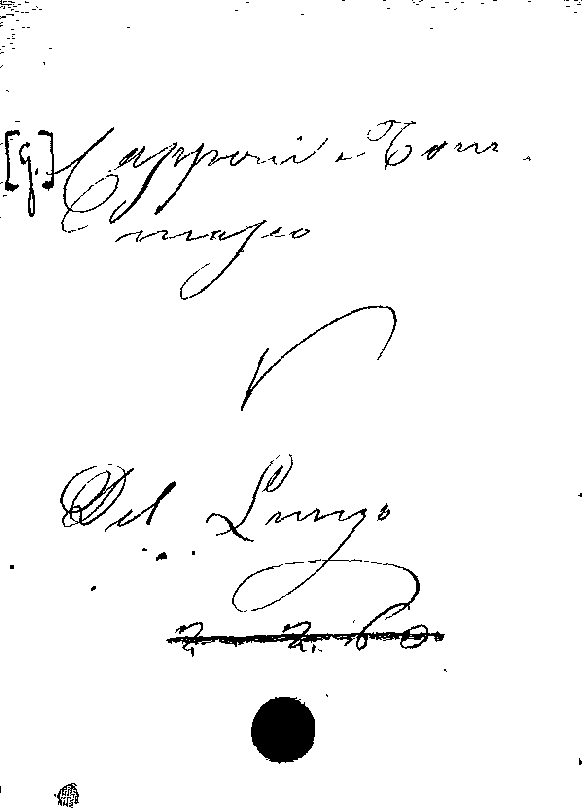 [G.] Capponi e Tom
maseo
V
Del Lungo
2. 2. 60.